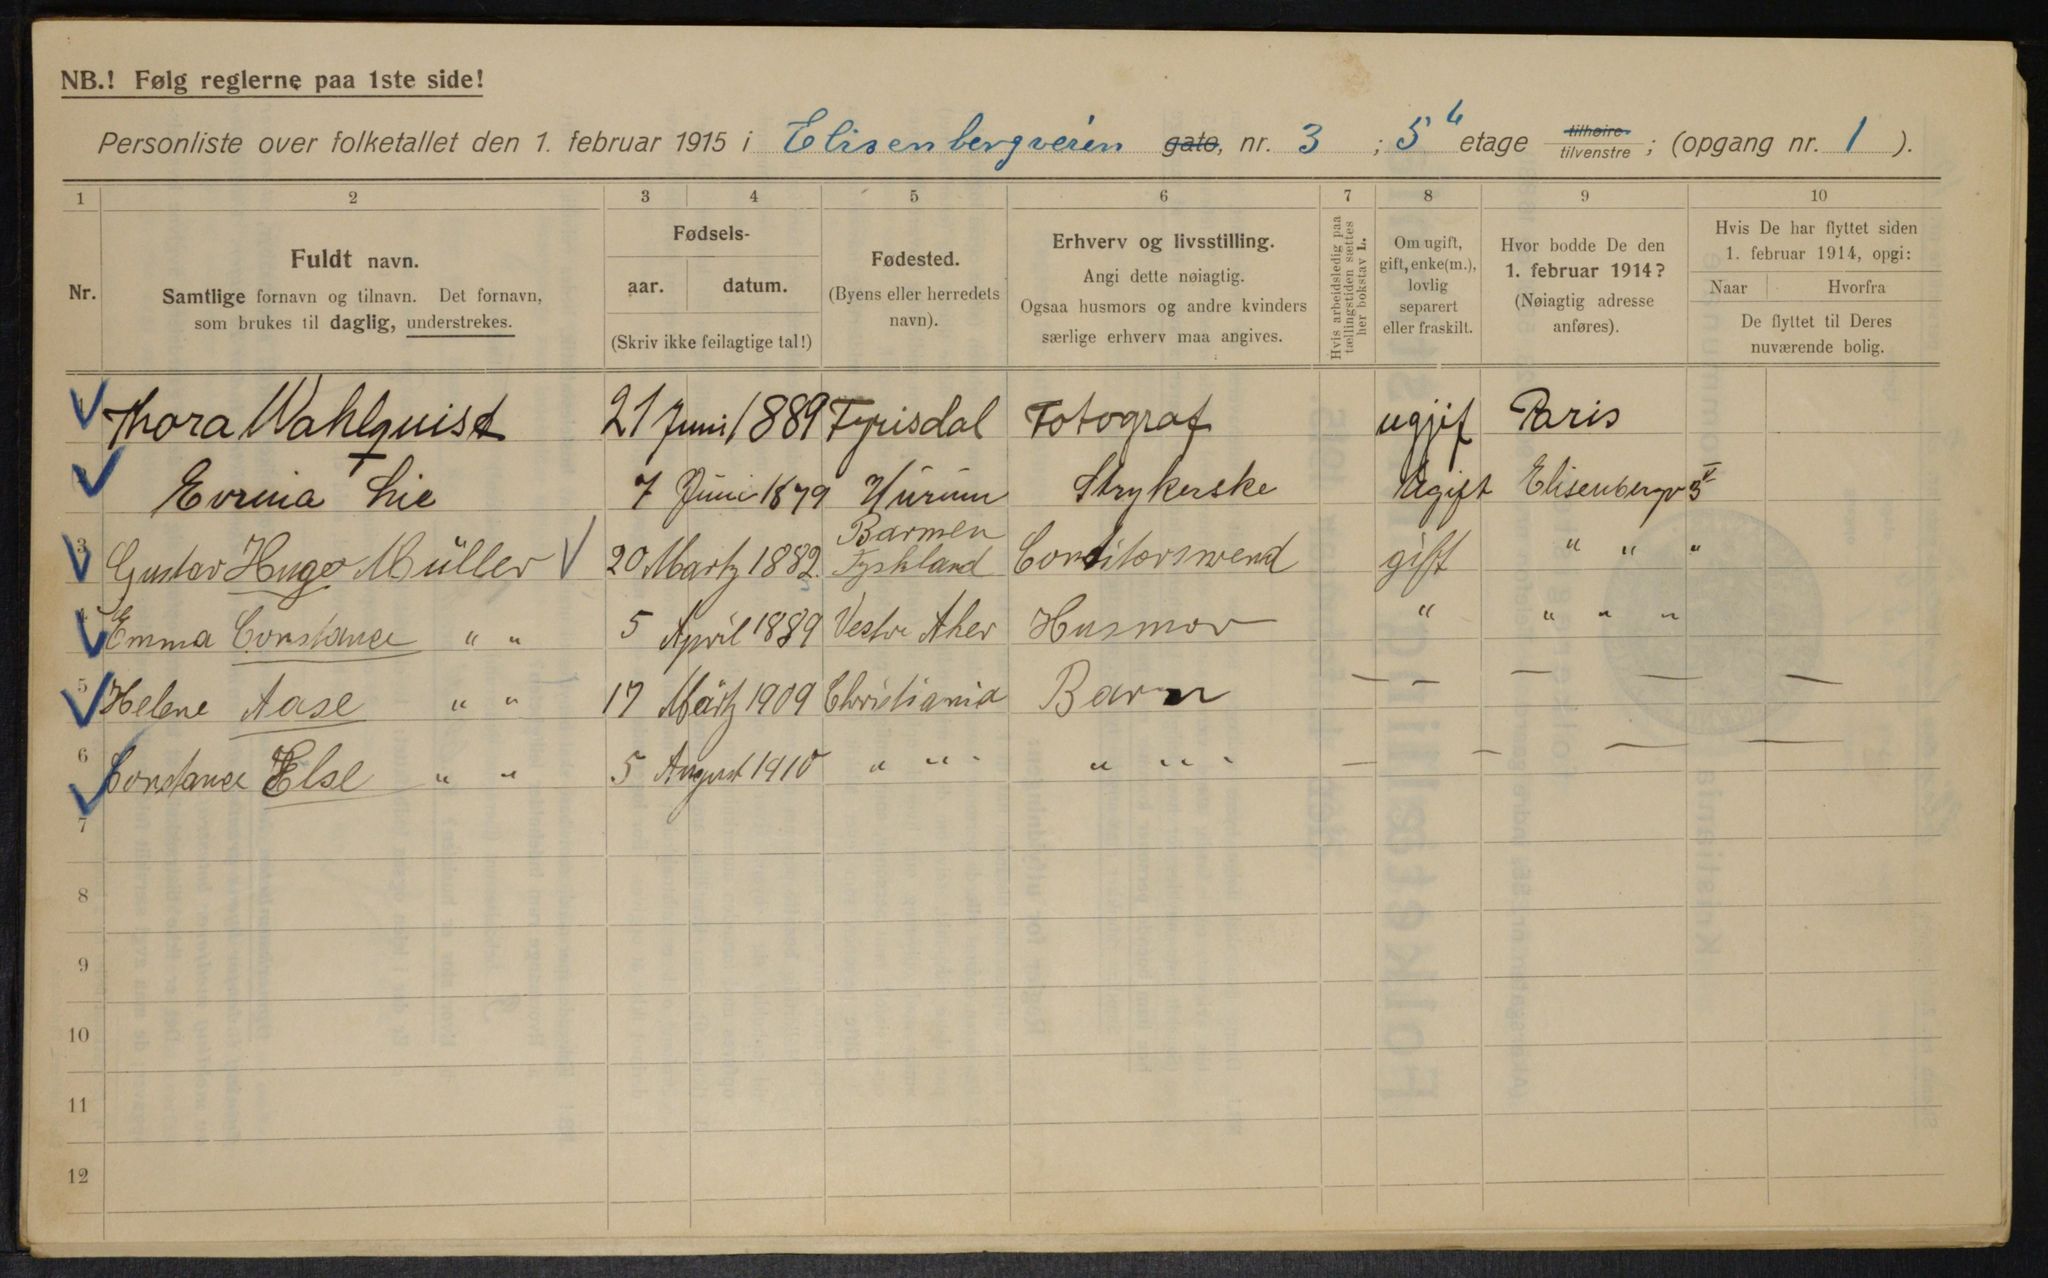 NB.! Følg reglerne paa 1ste side!
Personliste over folketallet den 1. februar 1915 i Elisenbergveien gate, nr. 3 ; 5 etage tilhøire tilvenstre ; (opgang nr. 1 ).
1 2 3 4 5 6 7 8 9 10
Nr.
Fuldt navn.
Samtlige fornavn og tilnavn. Det fornavn,
som brukes til daglig, understrekes.
Fødsels-
aar. datum.
(Skriv ikke feilagtige tal!)
Fødested.
(Byens eller herredets
navn).
Erhverv og livsstilling.
Angi dette nøiagtig.
Ogsaa husmors og andre kvinders
særlige erhverv maa angives.
Hvis arbeidsledig paa
tællingstiden sættes
her bokstav L.
Om ugift,
gift, enke(m.),
lovlig
separert
eller fraskilt.
Hvor bodde De den
1. februar 1914?
(Nøiagtig adresse
anføres).
Hvis De har flyttet siden
1. februar 1914, opgi:
Naar Hvorfra
De flyttet til Deres
nuværende bolig.
Thora Wahlquist 21 Juni 1889 Fyrisdal Fotograf ugjif Paris
Lie 7 Juni 1879 Hurum Strykerske Ugift Elisenbergv 3 V
3 Gustav Hugo Müller 20 Martz 1882 Barmen Tyskland Conditorsvend gift " " "
4 Emma Constance " " 5 April 1889 Vestre Aker Husmor " " " "
5 Helene Aase " " 17 Märtz 1909 Christiania Barn — — — — —
6 Constance Else " " 5 August 1910 " " " " " " — — — —
7
8
9
10
11
12